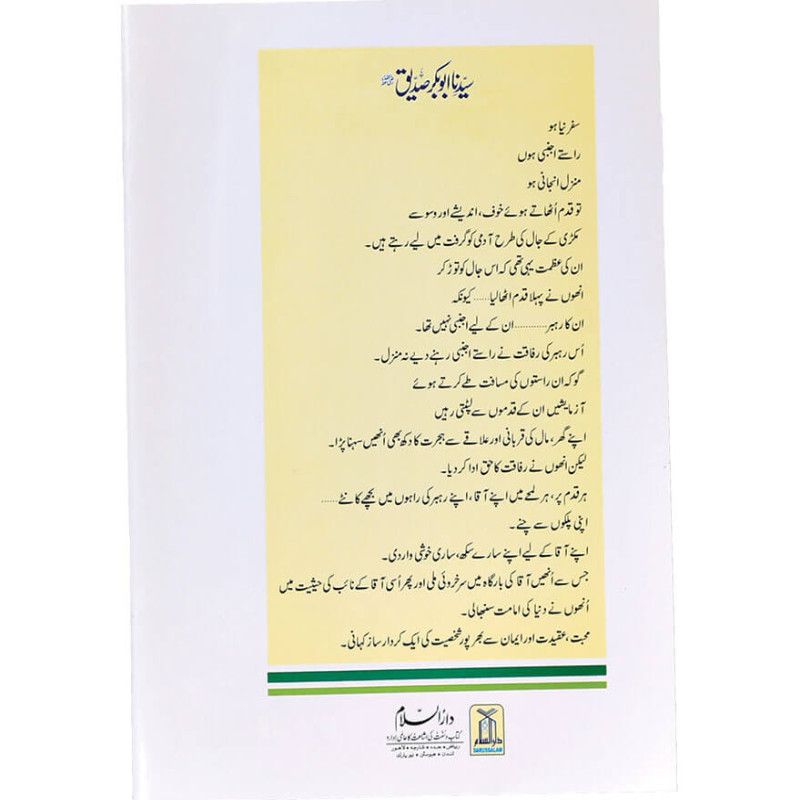 سیّدنا ابوبکر صدّیق رضی اللہ عنہ
سفر نیا ہو
راستے اجنبی ہوں
منزل انجانی ہو
تو قدم اُٹھاتے ہوئے خوف، اندیشے اور وسوسے
مکڑی کے جال کی طرح آدمی کو گرفت میں لیے رہتے ہیں۔
ان کی عظمت یہی تھی کہ اس جال کو توڑ کر
انھوں نے پہلا قدم اٹھا لیا...... کیونکہ
ان کا رہبر............ان کے لیے اجنبی نہیں تھا۔
اُس رہبر کی رفاقت نے راستے اجنبی رہنے دیے نہ منزل۔
گو کہ ان راستوں کی مسافت طے کرتے ہوئے
آزمایشیں ان کے قدموں سے لپٹتی رہیں
اپنے گھر، مال کی قربانی اور علاقے سے ہجرت کا دکھ بھی اُنھیں سہنا پڑا۔
لیکن انھوں نے رفاقت کا حق ادا کر دیا۔
ہر قدم پر، ہر لمحے میں اپنے آقا، اپنے رہبر کی راہوں میں بچھے کانٹے......
اپنی پلکوں سے چنے۔
اپنے آقا کے لیے اپنے سارے سکھ، ساری خوشی وار دی۔
جس سے اُنھیں آقا کی بارگاہ میں سرخروئی ملی اور پھر اُسی آقا کے نائب کی حیثیت میں
اُنھوں نے دنیا کی امامت سنبھالی۔
محبت، عقیدت اور ایمان سے بھرپور شخصیت کی ایک کردار ساز کہانی۔
دارُالسلام
کتاب و سنّت کی اشاعت کا عالمی ادارہ
ریاض • جدہ • شارجہ • لاہور
لندن • ہیوسٹن • نیویارک
دارالسلام
DARUSSALAM